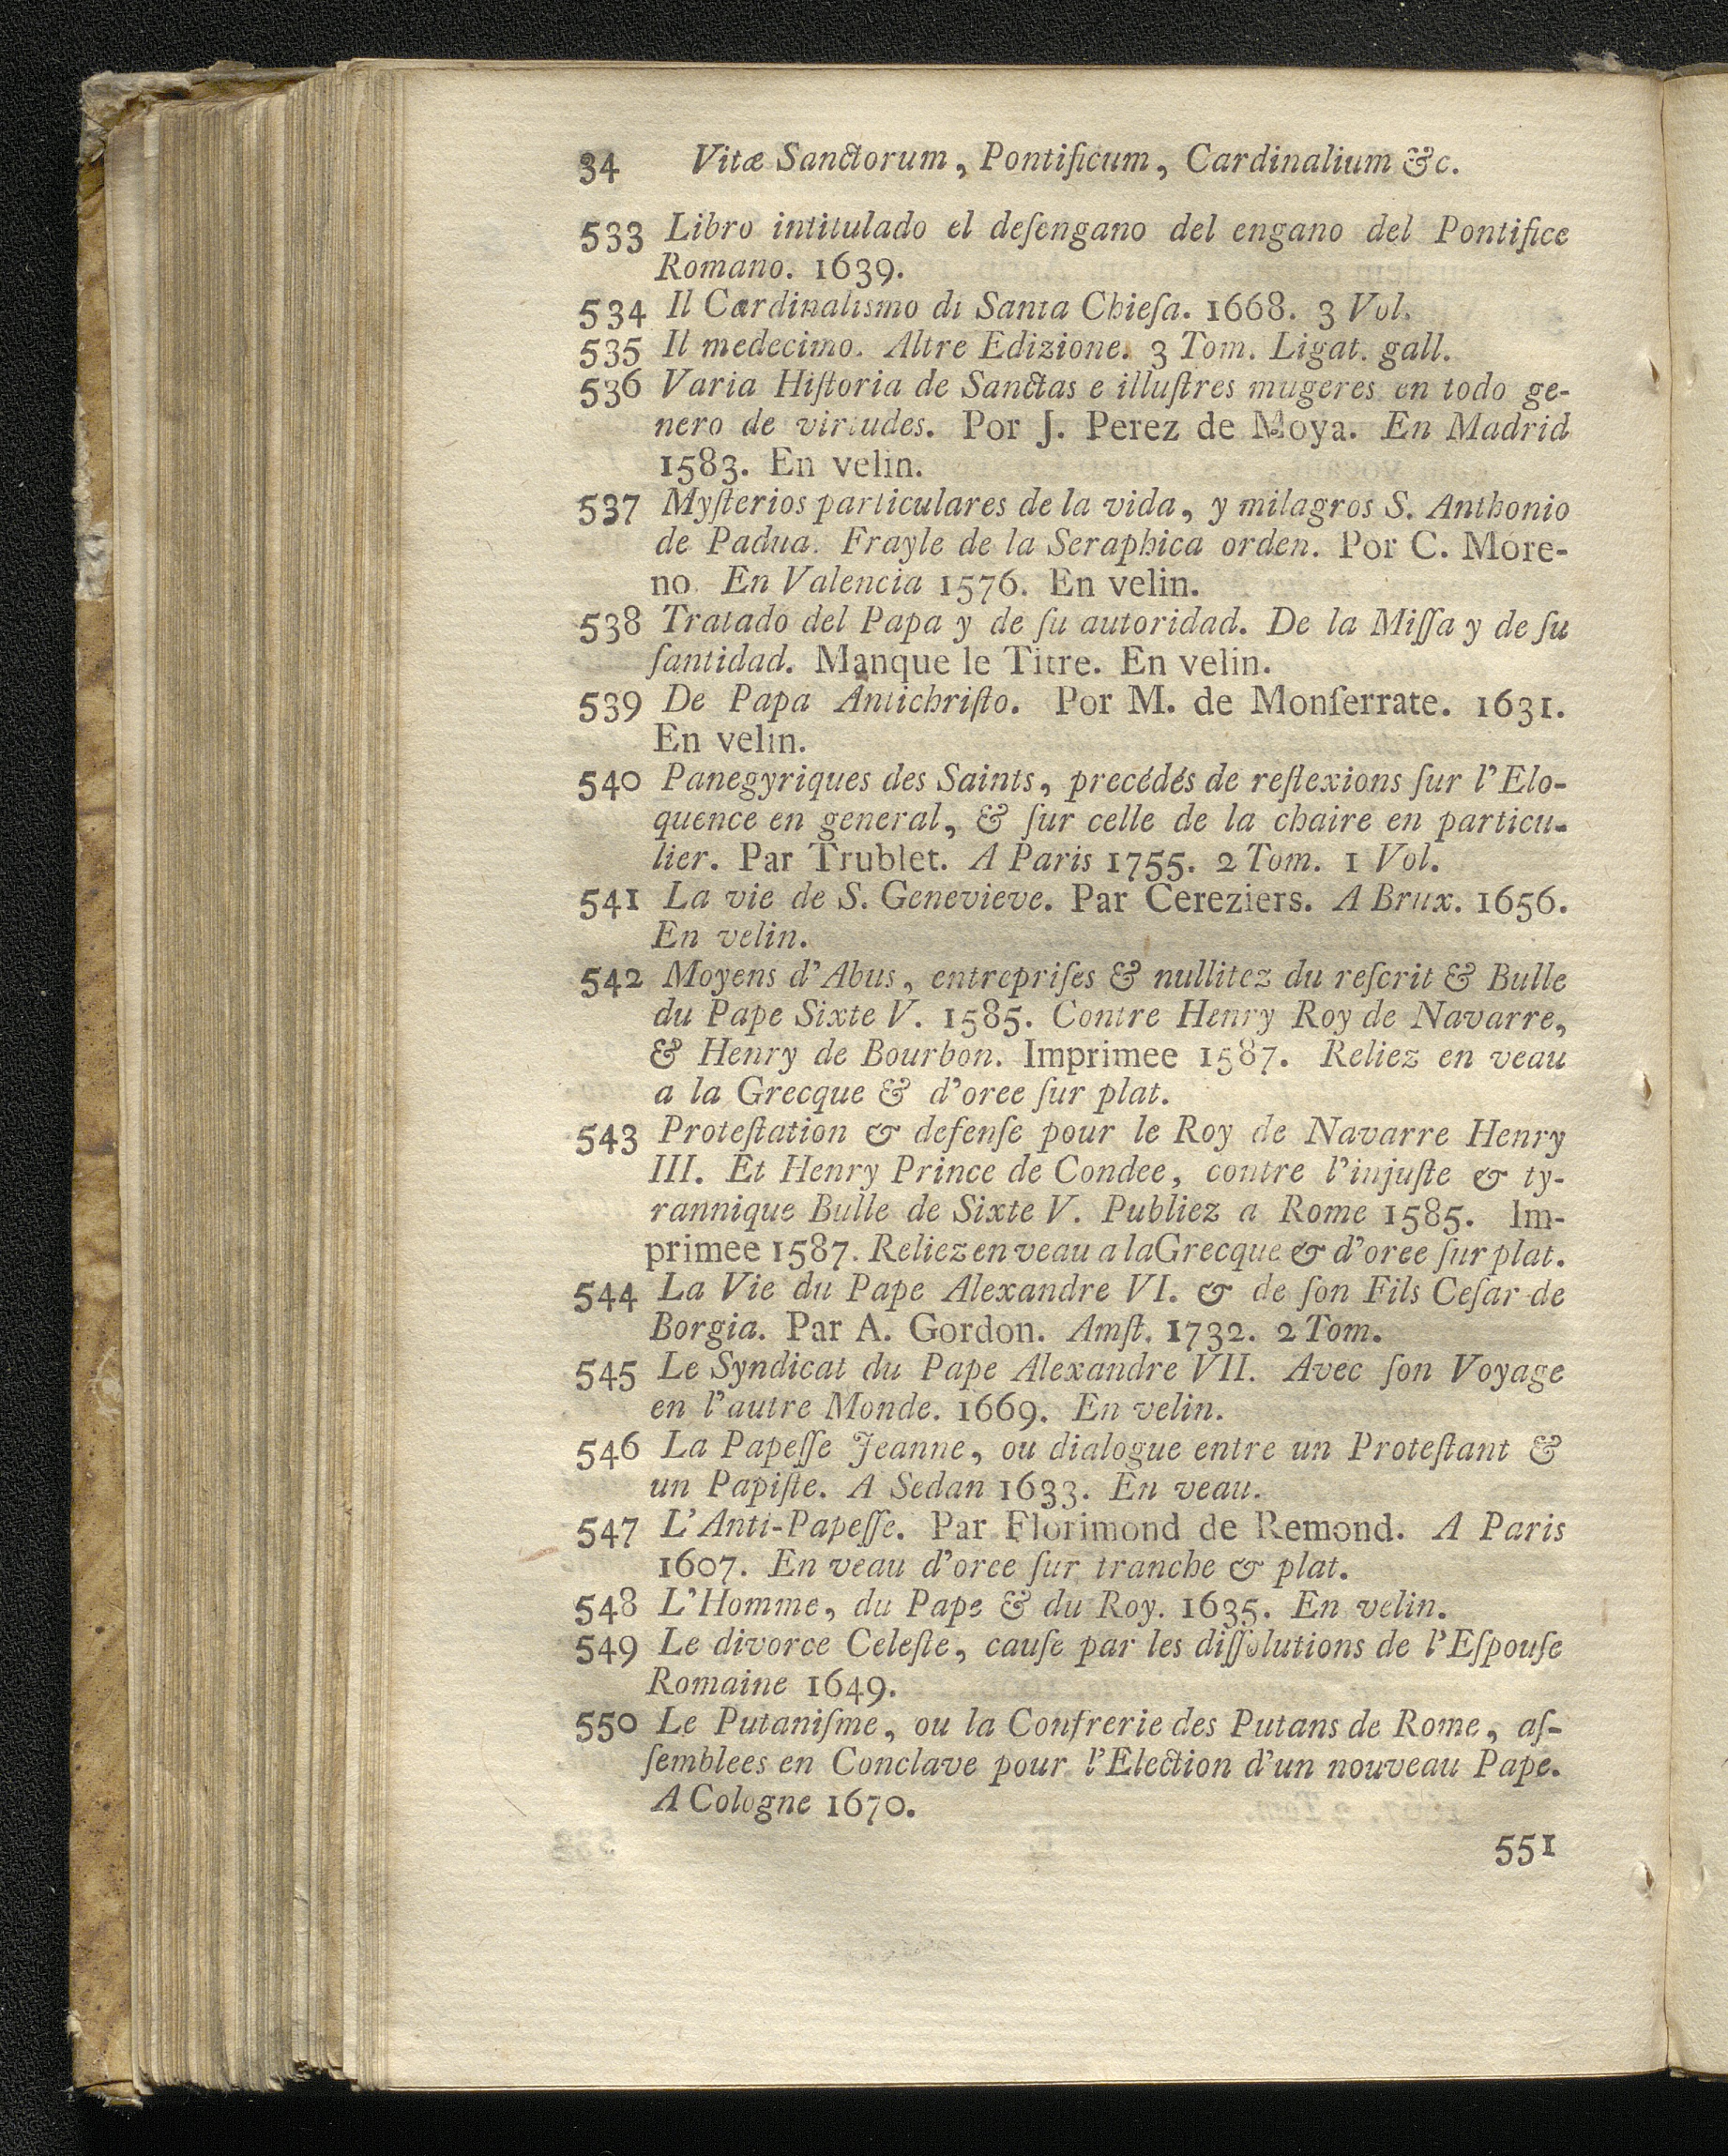 34 Vitæ Sanctorum, Pontificum, Cardinalium &c.
533 Libro intitulado el deſengano del engano del Pontifice
Romano. 1639.
534 Il Cardinalismo di Santa Chieſa. 1668. 3 Vol.
535 Il medecimo. Altre Edizione. 3 Tom. Ligat. gall.
536 Varia Hiſtoria de Sanctas e illuſtres mugeres en todo ge-
nero de virtudes. Por J. Perez de Moya. En Madrid
1583. En velin.
537 Myſterios particulares de la vida, y milagros S. Anthonio
de Padua. Frayle de la Seraphica orden. Por C. More-
no. En Valencia 1576. En velin.
538 Tratado del Papa y de ſu autoridad. De la Miſſa y de ſu
ſantidad. Manque le Titre. En velin.
539 De Papa Antichriſto. Por M. de Monſerrate. 1631.
En velin.
540 Panegyriques des Saints, precédés de reflexions ſur l'Elo-
quence en general, & ſur celle de la chaire en particu-
lier. Par Trublet. A Paris 1755. 2 Tom. 1 Vol.
541 La vie de S. Genevieve. Par Cereziers. A Brux. 1656.
En velin.
542 Moyens d'Abus, entrepriſes & nullitez du reſcrit & Bulle
du Pape Sixte V. 1585. Contre Henry Roy de Navarre,
& Henry de Bourbon. Imprimee 1587. Reliez en veau
a la Grecque & d'oree ſur plat.
543 Proteſtation & defenſe pour le Roy de Navarre Henry
III. Et Henry Prince de Condee, contre l'injuſte & ty-
rannique Bulle de Sixte V. Publiez a Rome 1585. Im-
primee 1587. Reliez en veau a la Grecque & d'oree ſur plat.
544 La Vie du Pape Alexandre VI. & de ſon Fils Ceſar de
Borgia. Par A. Gordon. Amſt. 1732. 2 Tom.
545 Le Syndicat du Pape Alexandre VII. Avec ſon Voyage
en l'autre Monde. 1669. En velin.
546 La Papeſſe Jeanne, ou dialogue entre un Proteſtant &
un Papiſte. A Sedan 1633. En veau.
547 L'Anti-Papeſſe. Par Florimond de Remond. A Paris
1607. En veau d'oree ſur tranche & plat.
548 L'Homme, du Pape & du Roy. 1635. En velin.
549 Le divorce Celeſte, cauſe par les diſſolutions de l'Eſpouſe
Romaine 1649.
550 Le Putaniſme, ou la Confrerie des Putans de Rome, aſ-
ſemblees en Conclave pour l'Election d'un nouveau Pape.
A Cologne 1670.
551